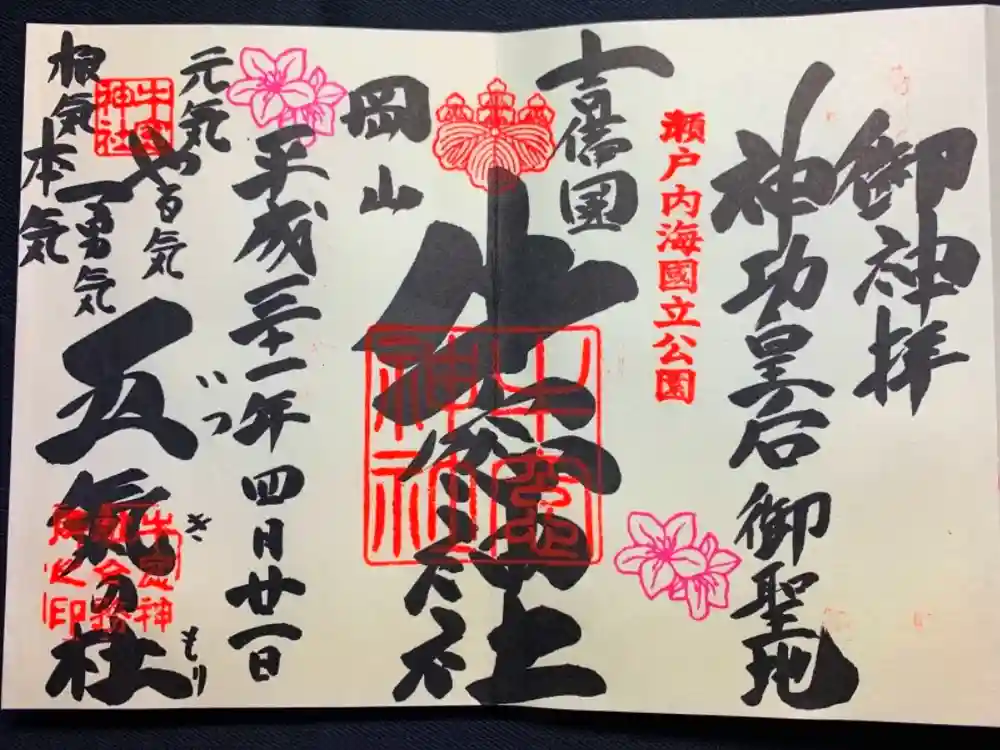 御神拝
神功皇后御聖地
瀬戸内海國立公園
吉備国
牛窓神社
牛窓神社
岡山
平成三十一年四月廿一日
元気
やる気
勇気
根気
本気
牛窓神社
五気の杜
いつ
き
もり